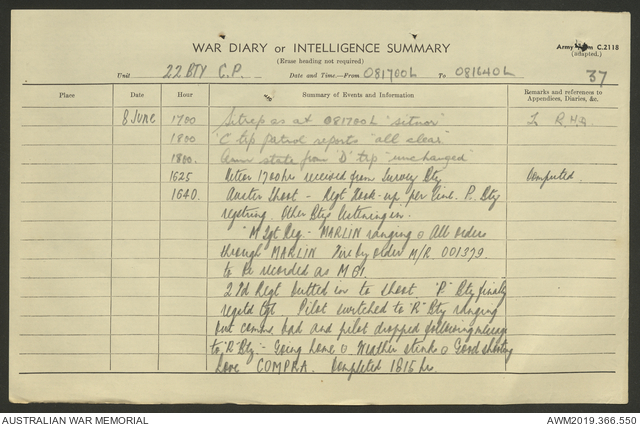 WAR DIARY or INTELLIGENCE SUMMARY
(Erase heading not required)
Army Form C.2118
(adapted.)
Unit 22 BTY C.P. Date and Time—From 081700L To 081640L
37
Place Date Hour Summary of Events and Information Remarks and references to Appendices, Diaries, &c.
8 June 1700 Sitrep as at 081700L "sitnor" To R.H.Q
1800 'C' trp patrol reports "all clear"
1800. Amn state from 'D' trp "unchanged"
1625 Meteor 1700 hr received from Survey Bty Computed
1640. Auster Shoot – Regt hook-up per line. P. Bty
registring. Other Btys listening in.
"M Tgt Reg – MARLIN ranging o All orders
through MARLIN Fire by order M/R 001379
to be recorded as M
2 Fd Regt butted in to shoot 'P' Bty finally
regstd tgt Pilot switched to 'R' Bty ranging
but comms bad and pilot dropped following message
to 'R' Bty – Going home o Weather stinks o Good shooting
love COMPRA. Completed 1815 hr.
AUSTRALIAN WAR MEMORIAL
AWM2019.366.550